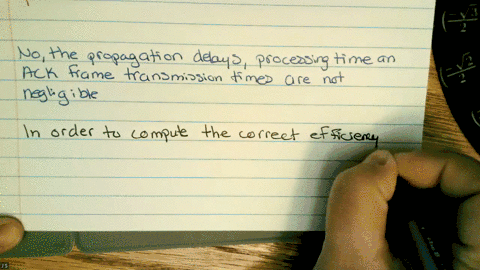 No, the propagation delays, processing time an
ACK frame transmission times are not
negligible
In order to compute the correct efficiency